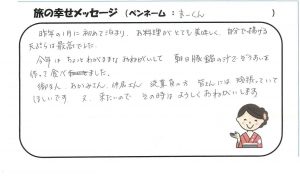 旅の幸せメッセージ (ペンネーム : まーくん )
昨年の1月に初めて泊まり、お料理がとても美味しく、自分で揚げる
天ぷらは最高でした。
今年は ちょっとわがままなおねがいして 朝日豚鍋の汁でぞうすいを
作って食べました。
おかみさん、仲居さん 従業員の方 皆さんには 頑張っていて
ほしいです 又、来たいので その時は よろしくおねがいします